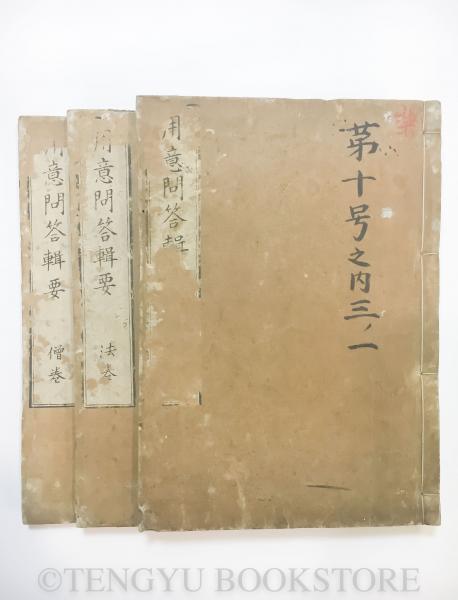 第十号之内三ノ一
用意問答輯
用意問答輯要
法巻
用意問答輯要
僧巻
©TENGYU BOOKSTORE